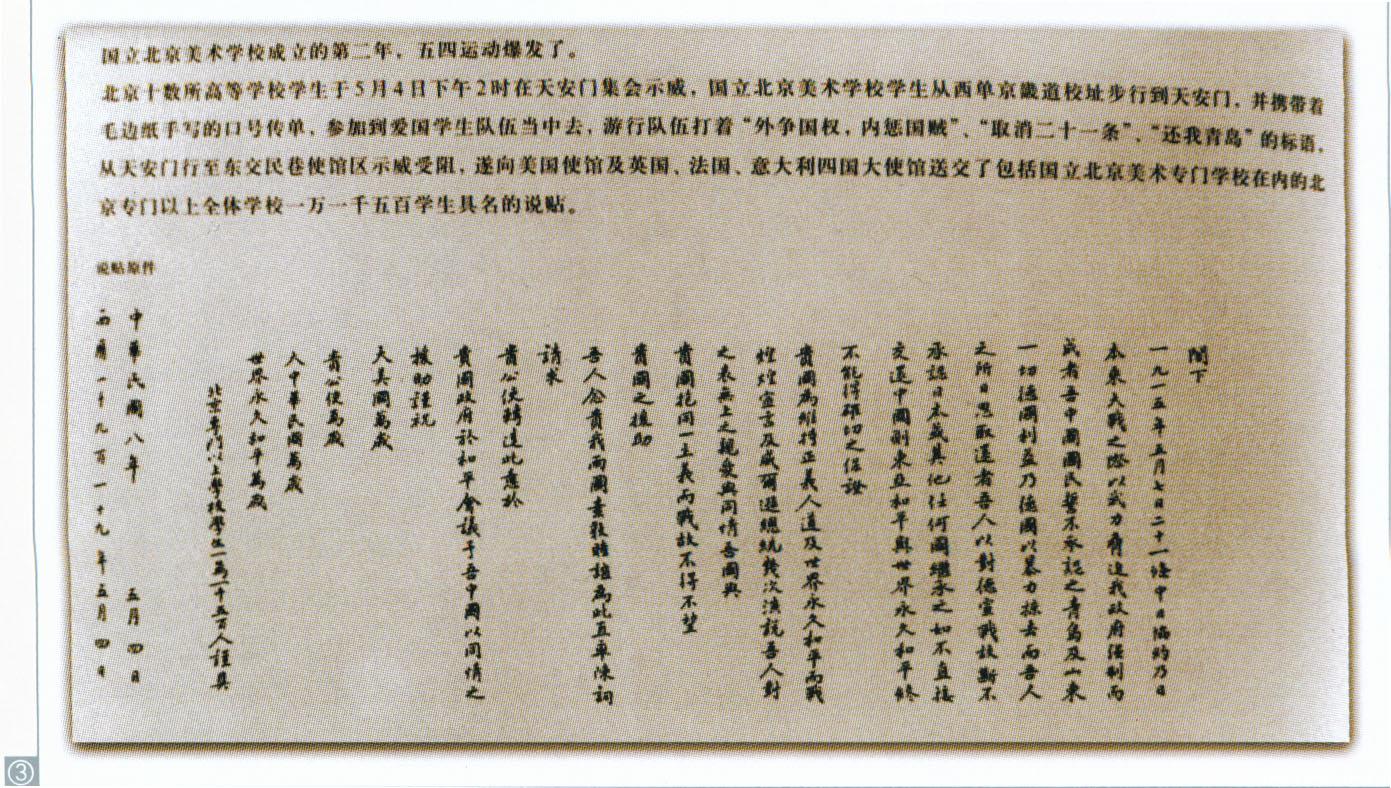 国立北京美术学校成立的第二年，五四运动爆发了。
北京十数所高等学校学生于5月4日下午2时在天安门集会示威，国立北京美术学校学生从西单京畿道校址步行到天安门，并携带着
毛边纸手写的口号传单，参加到爱国学生队伍当中去，游行队伍打着“外争国权，内惩国贼”、“取消二十一条”、“还我青岛”的标语，
从天安门行至东交民巷使馆区示威受阻，遂向美国使馆及英国、法国、意大利四国大使馆送交了包括国立北京美术专门学校在内的北
京专门以上全体学校一万一千五百学生具名的说贴。
说贴原件
閣下
一九一五年五月七日二十一條中日協約乃日
本乘大戰之際以武力脅迫我政府强制而
成者吾中國國民誓不承認之青島及山東
一切德國利益乃德國以暴力掠去而吾人
之所日思取還者吾人以對德宣戰故斷不
承認日本或其他任何國繼承之如不直接
交還中國則東亞和平與世界永久和平終
不能得確切之保證
貴國為維持正義人道及世界永久和平而戰
煌煌宣言及威爾遜總統幾次演說吾人對
之表無上之親愛與同情吾國與
貴國抱同一主義而戰故不得不望
貴國之援助
吾人念貴我兩國素敦睦誼為此直率陳詞
請求
貴公使轉達此意於
貴國政府於和平會議予吾中國以同情之
援助謹祝
大美國萬歲
貴公使萬歲
大中華民國萬歲
世界永久和平萬歲
北京專門以上學校學生一萬一千五百人謹具
中華民國八年 五月四日
西曆一千九百一十九年五月四日
③